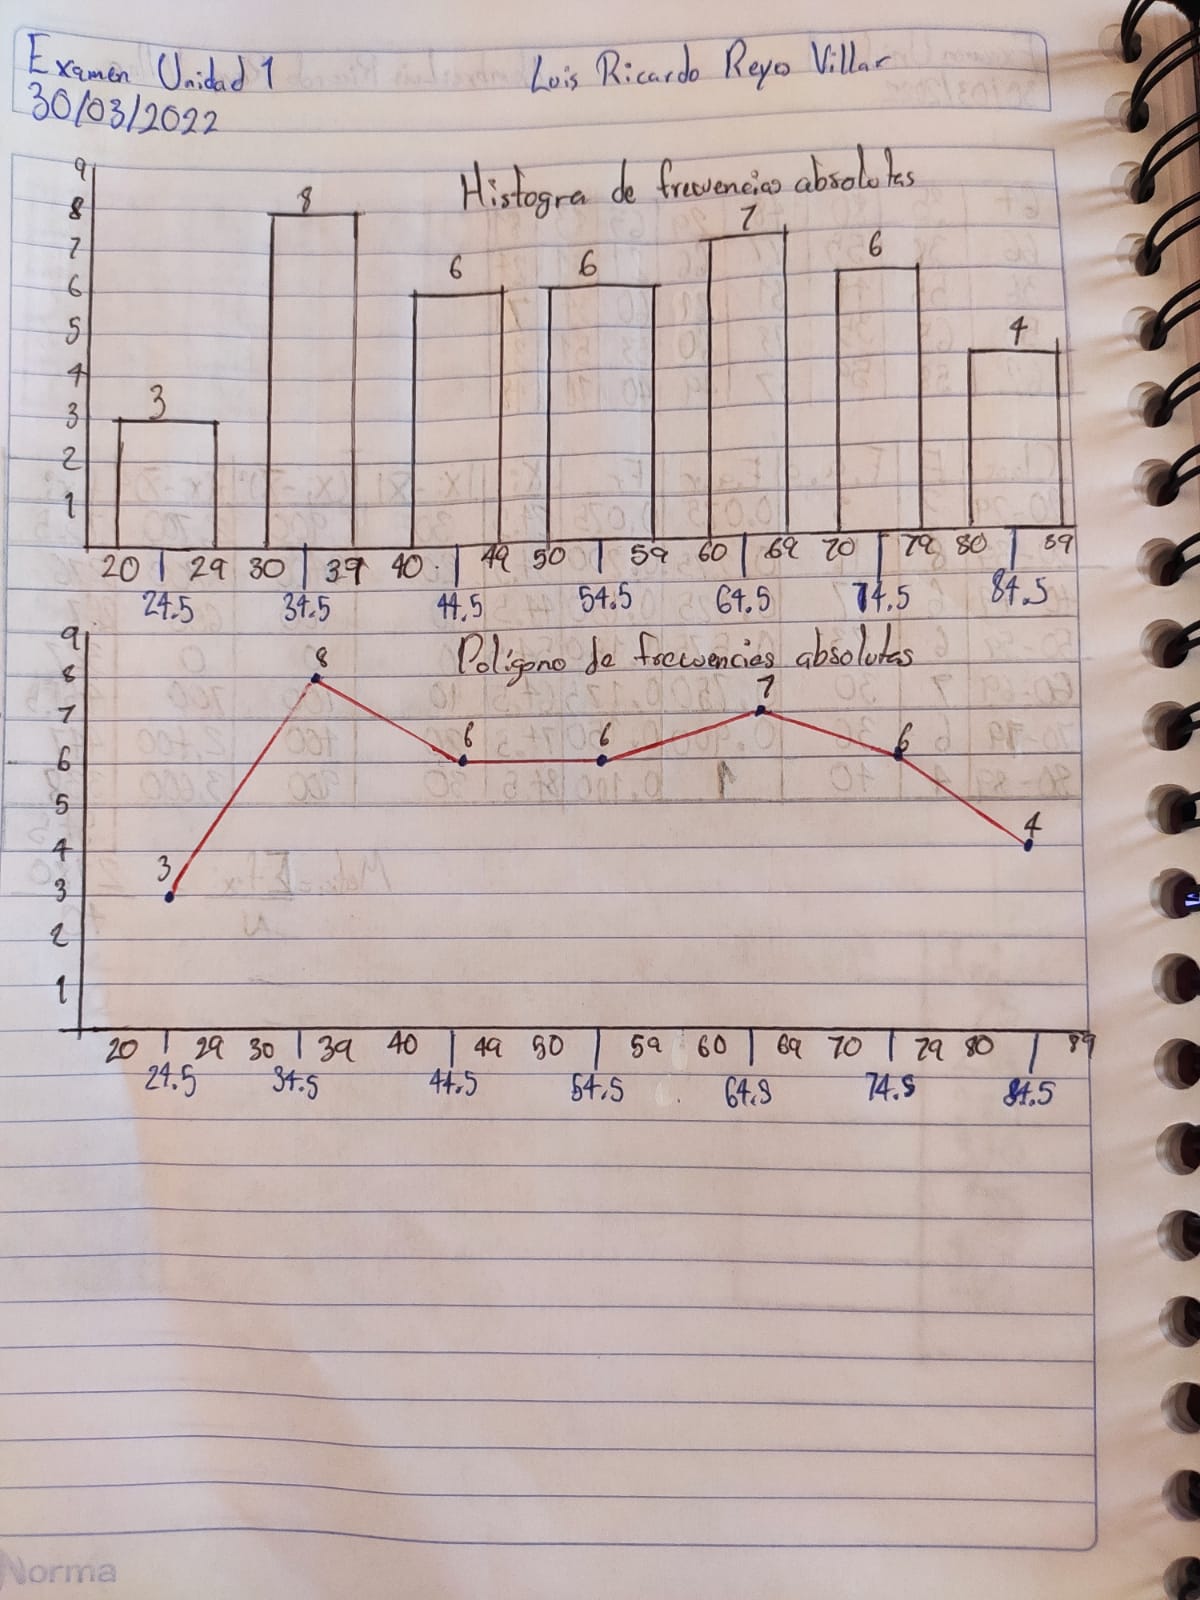 Examen Unidad 1 Luis Ricardo Reyo Villar
30/03/2022
Histogra de frecuencias absolutas
9
8
7
6
5
4
3
2
1
3 8 6 6 7 6 4
20 29 30 39 40 49 50 59 60 69 70 79 80 89
24.5 34.5 44.5 54.5 64.5 74.5 84.5
Polígono de frecuencias absolutas
9
8
7
6
5
4
3
2
1
3 8 6 6 7 6 4
20 29 30 39 40 49 50 59 60 69 70 79 80 89
24.5 34.5 44.5 54.5 64.5 74.5 84.5
Norma